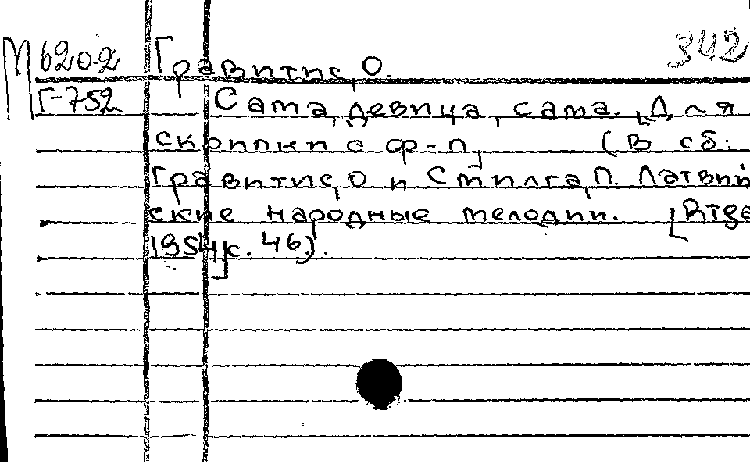 М 620-2 Гравитис, О. 342
Г-752 Сама, девица, сама. [Для
скрипки с ф-п] (В сб.
Гравитис, О и Стилга, П. Латвий
ские народные мелодии. [Riga
1954] с. 46).